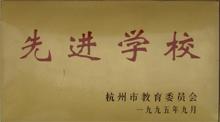 先进学校
杭州市教育委员会
一九九五年九月